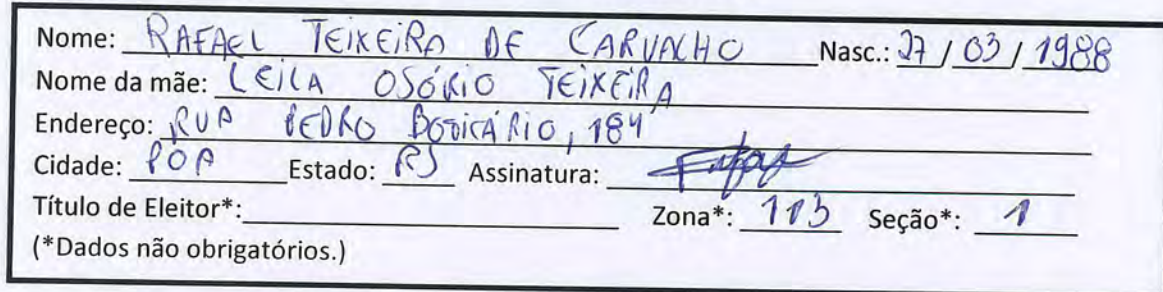 Nome: RAFAEL TEIXEIRA DE CARVALHO Nasc.: 27 / 03 / 1988
Nome da mãe: LEILA OSÓRIO TEIXEIRA
Endereço: RUA PEDRO BOTICÁRIO, 184
Cidade: POA Estado: RS Assinatura:
Título de Eleitor*: Zona*: 113 Seção*: 1
(*Dados não obrigatórios.)